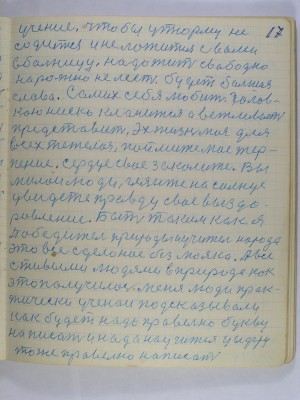 17
учение, чтобы утюрму не
содится и не ложится свами
вбалницу. надо жить свободно
нарожно не лесть будет балшая
слава. Самих себя любить голов-
кою ниско кланится а вежливать
представить, Эх жизня моя для
всех тежолая, поймите мае тер-
пение, сердце свое закалите. Вы
милаи люди, гляньте на солнце
увидете правду свае выздо-
равление. Быть таким как я
победител природы и учител народа
это все сделоное без маяка. А вее
стивыми людями в природе как
это получилос, меня люди прак-
тически ученаи подсказывали
как будет надо правелно букву
написать и надо научится и иду
тоже правелно написать